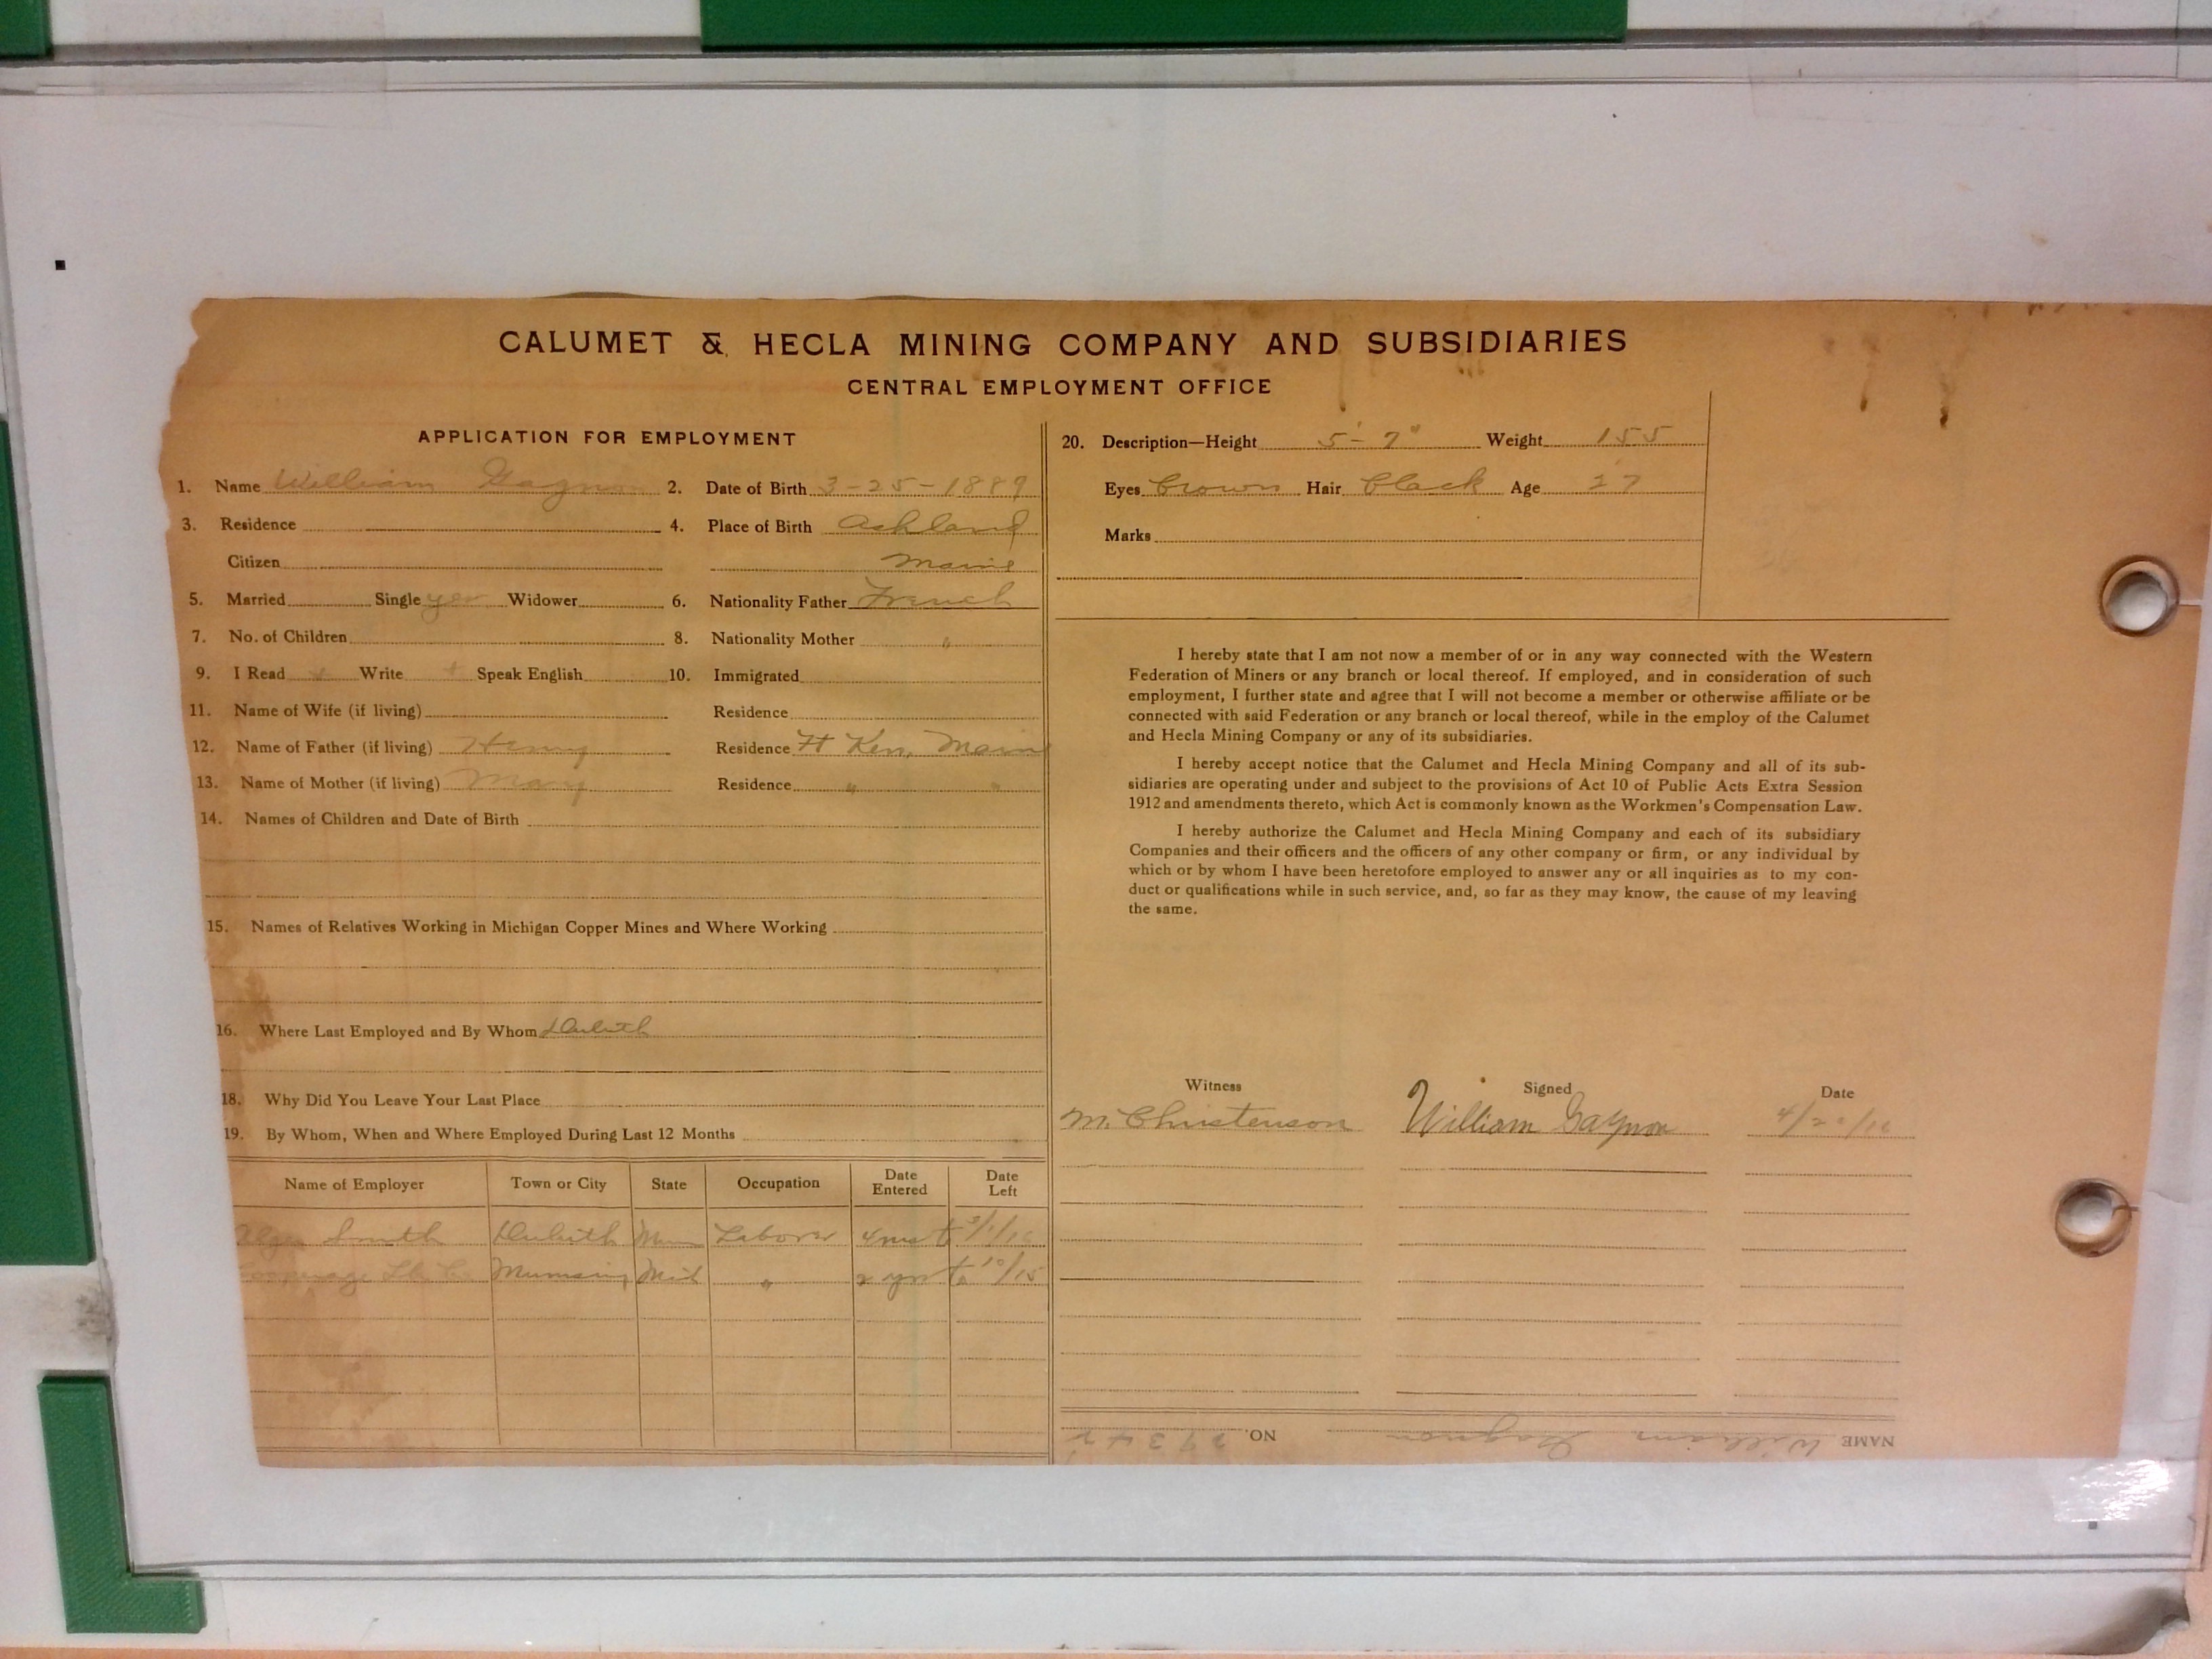 CALUMET & HECLA MINING COMPANY AND SUBSIDIARIES
CENTRAL EMPLOYMENT OFFICE
APPLICATION FOR EMPLOYMENT
1. Name William Gagnon 2. Date of Birth 3-25-1889
3. Residence 4. Place of Birth Ashland
Citizen Maine
5. Married Single yes Widower 6. Nationality Father French
7. No. of Children 8. Nationality Mother "
9. I Read + Write + Speak English 10. Immigrated
11. Name of Wife (if living) Residence
12. Name of Father (if living) Henry Residence Ft Ken, Maine
13. Name of Mother (if living) Mary Residence " "
14. Names of Children and Date of Birth
15. Names of Relatives Working in Michigan Copper Mines and Where Working
16. Where Last Employed and By Whom Duluth
18. Why Did You Leave Your Last Place
19. By Whom, When and Where Employed During Last 12 Months
Name of Employer Town or City State Occupation Date Entered Date Left
Alger Smith Duluth Minn Laborer 4 mos to 3/1/16
Munising Mich " 2 yrs to 10/15
20. Description—Height 5'-7" Weight 155
Eyes Brown Hair Black Age 27
Marks
I hereby state that I am not now a member of or in any way connected with the Western
Federation of Miners or any branch or local thereof. If employed, and in consideration of such
employment, I further state and agree that I will not become a member or otherwise affiliate or be
connected with said Federation or any branch or local thereof, while in the employ of the Calumet
and Hecla Mining Company or any of its subsidiaries.
I hereby accept notice that the Calumet and Hecla Mining Company and all of its sub-
sidiaries are operating under and subject to the provisions of Act 10 of Public Acts Extra Session
1912 and amendments thereto, which Act is commonly known as the Workmen's Compensation Law.
I hereby authorize the Calumet and Hecla Mining Company and each of its subsidiary
Companies and their officers and the officers of any other company or firm, or any individual by
which or by whom I have been heretofore employed to answer any or all inquiries as to my con-
duct or qualifications while in such service, and, so far as they may know, the cause of my leaving
the same.
Witness Signed Date
M. Christenson William Gagnon 4/20/16
NAME William Gagnon NO.